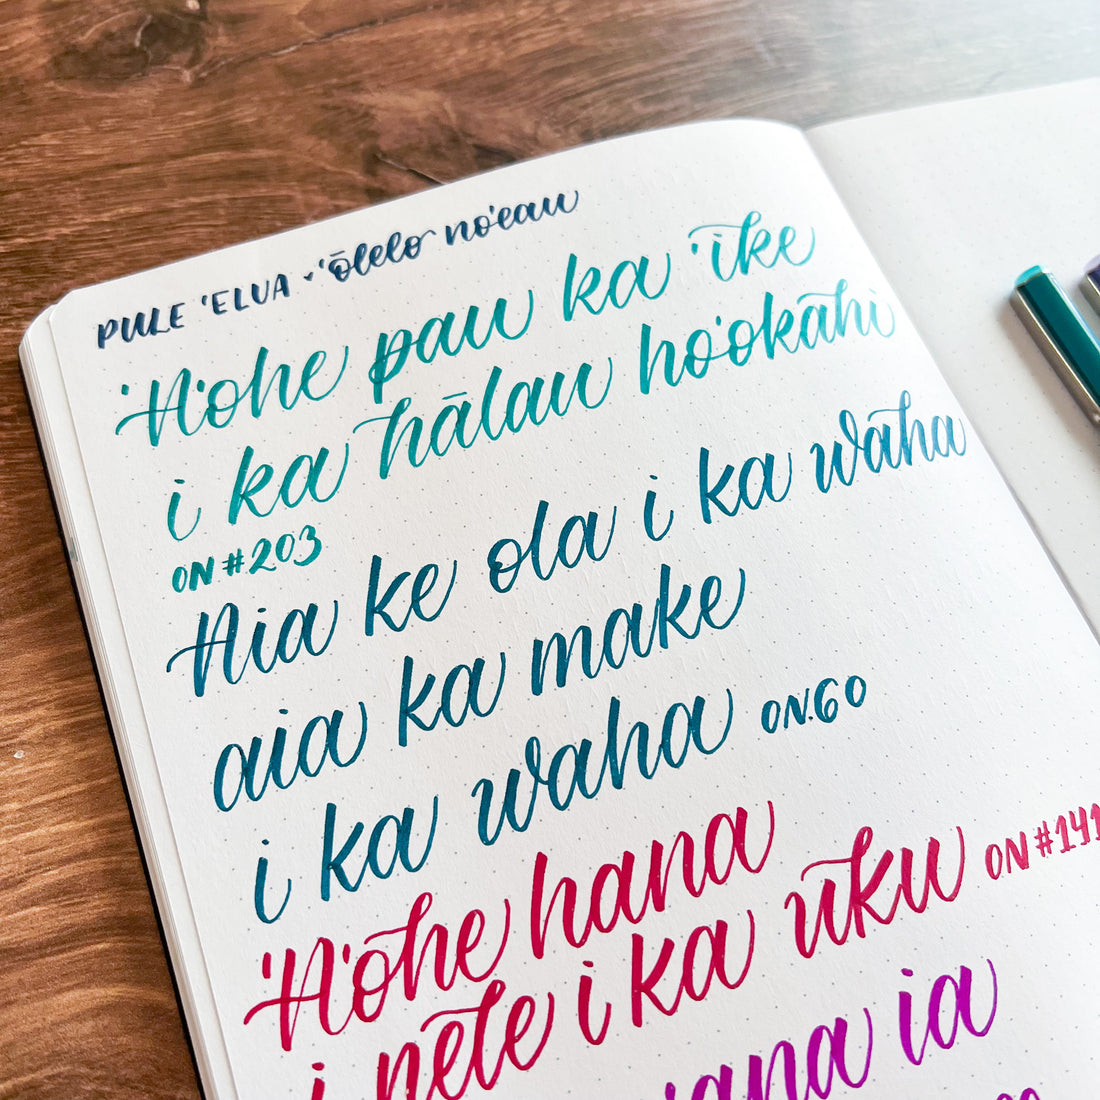 PULE ʻELUA • ʻōlelo noʻeau
ʻAʻohe pau ka ʻike
i ka hālau hoʻokahi
ON #203
Aia ke ola i ka waha
aia ka make
i ka waha ON.60
ʻAʻohe hana
i nele i ka uku ON #141
ia